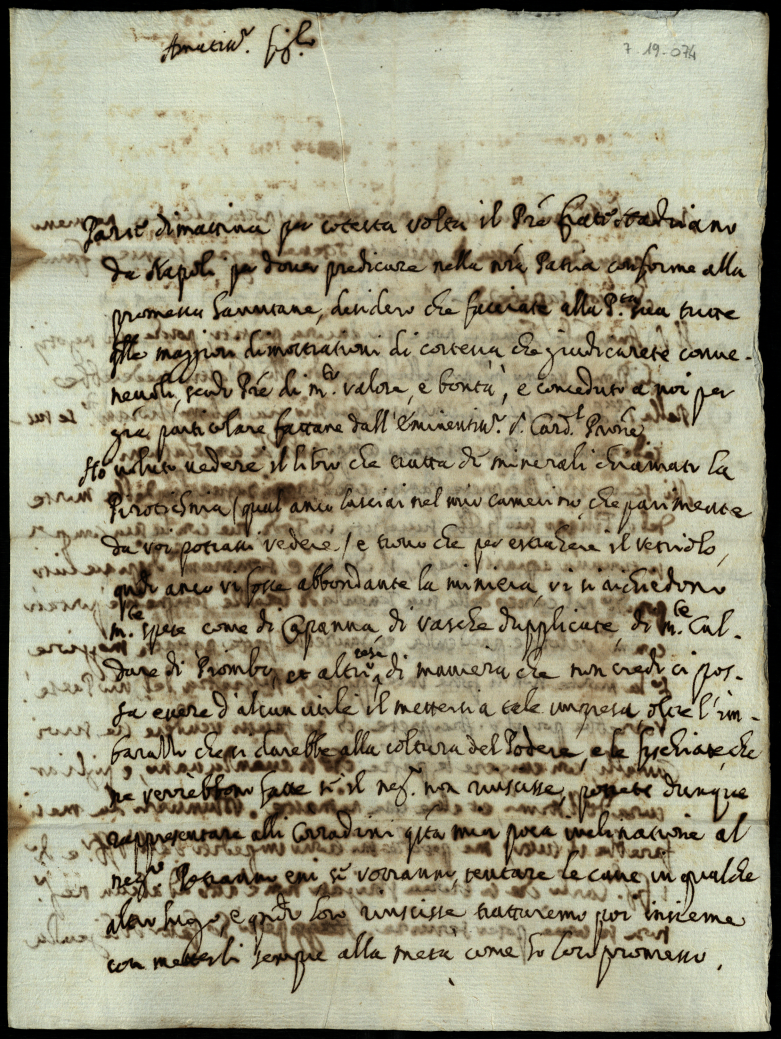 Amatiss.º figl.º
7-19-074
Parte dimattina per cotesta volta il Prē
da Napoli, per dover predicare nella nrā Patria conforme alla
promessa, desidero che facciate alla P.tà sua tutte
le maggiori dimostrationi di cortesia che giudicarete conue-
neuoli, sendo Prē di m.to valore, e bontà, e conceduto a noi per
grā particolare fattane dall'Eminentiss.º S. Card.l
Ho voluto vedere il libro che tratta di minerali chiamato la
Pirotecnia (qual anco lasciai nel mio camerino, che parimente
da voi potrassi vedere) e trovo che per estrahere il vetriolo,
qñdo anco vi fosse abbondante la miniera, vi si richiedono
m.te spese come di Capanna, di vasche dupplicate, di m.te Cal-
dare di Piombo, et altre cose di maniera che non credo ci pos-
sa essere d'alcun utile il mettersi a tale impresa, oltre l'im-
barazzo che si darebbe alla coltura del Podere, e le fischiate, che
ne verrebbono fatte se il neg.º non riuscisse, potete dunque
rappresentare alli Corradini qūta mia poca inclinatione al
neg.º Potranno essi se vorranno, tentare le cave in qualche
altro luogo, e qñdo loro riuscisse trattaremo poi insieme
con metterli sempre alla metà come ho loro promesso.